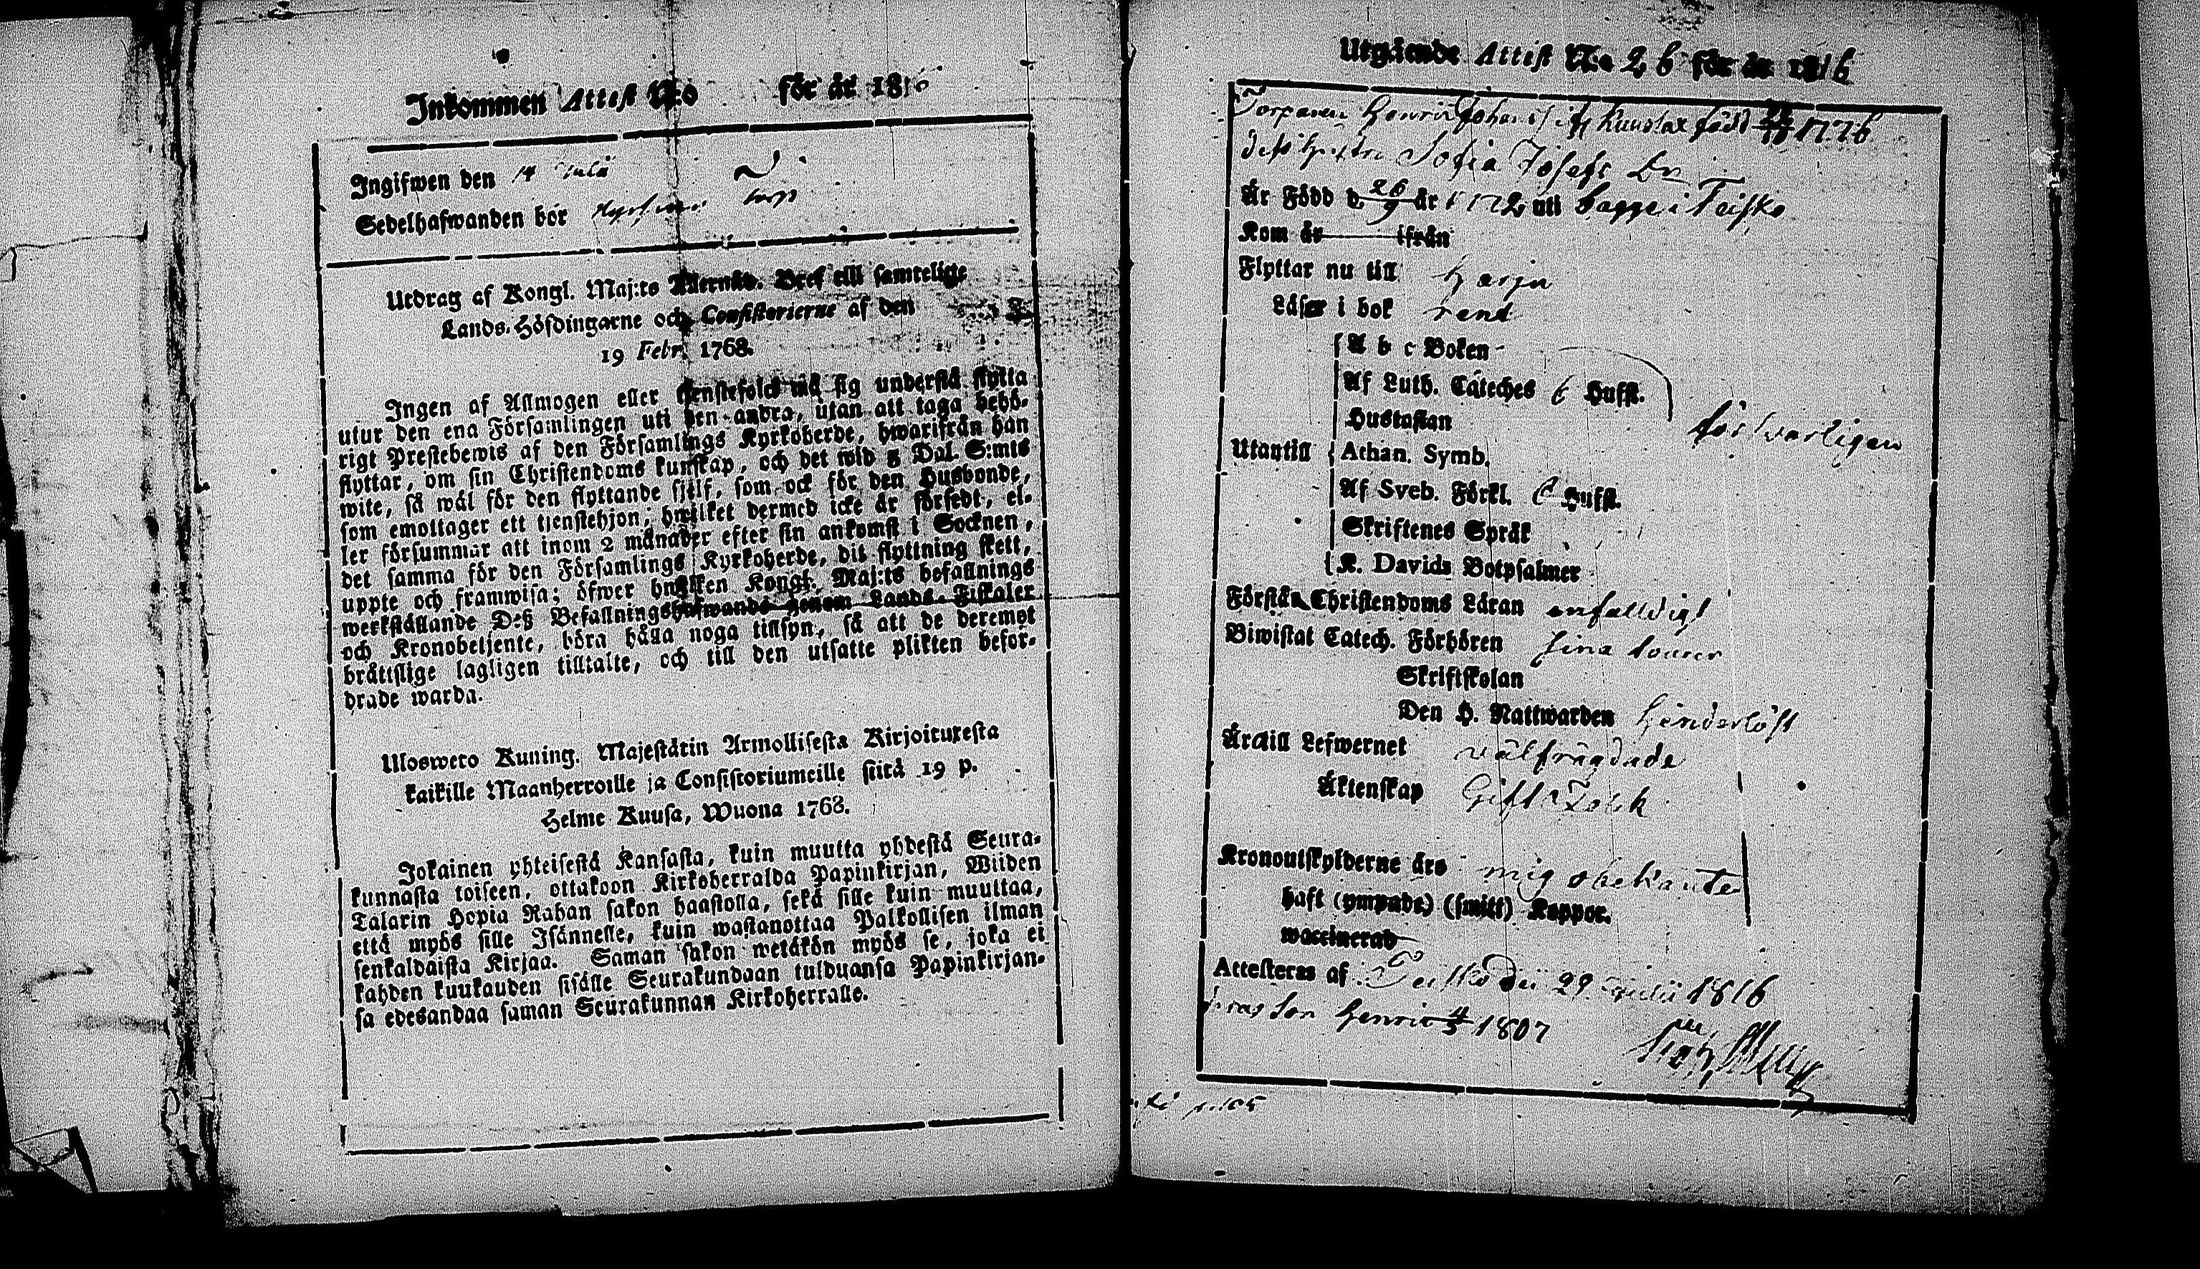 Inkommen Attest N:o för år 1816
Ingifwen den 14 Julii
Sedelhafwanden bor
Utdrag af Kongl. Maj:ts Allernåd. Bref till samtelige
Lands-Höfdingarne och Consistorierne af den
19 Febr. 1768.
Ingen af Allmogen eller tjenstefolck må sig understå flytta
utur den ena Församlingen uti den andra, utan att taga behö-
rigt Prestebewis af den Församlings Kyrkoherde, hwarifrån han
flyttar, om sin Christendoms kunskap, och det wid 5 Dal. S:mts
wite, så wäl för den flyttande sjelf, som ock för den Husbonde,
som emottager ett tjenstehjon; hwilket dermed icke är försedt, el-
ler försummar att inom 2 månader efter sin ankomst i Socknen,
det samma för den Församlings Kyrkoherde, dit flyttning skett,
uppte och framwisa; öfwer hwilken Kongl. Maj:ts befallnings
werkställande Deß Befallningshafwande genom Lands-Fiskaler
och Kronobetjente, böra hålla noga tillsyn, så att de deremot
bråttslige lagligen tilltalte, och till den utsatte plikten befor-
drade warda.
Uloswero Kuning. Majestätin Armollisesta Kirjoituxesta
kaikille Maanherroille ja Consistoriumeille siitä 19 p.
Helme Kuusa, Wuona 1768.
Jokainen yhteisestä Kansasta, kuin muutta yhdestä Seura-
kunnasta toiseen, ottakoon Kirkoherralda Papinkirjan, Wiiden
Talarin Hopia Rahan sakon haastolla, sekä sille kuin muuttaa,
että myös sille Isännelle, kuin wastanottaa Palkollisen ilman
senkaldaista Kirjaa. Saman sakon wetäkön myös se, joka ei
kahden kuukauden sisälle Seurakundaan tulduansa Papinkirjan-
sa edesandaa saman Seurakunnan Kirkoherralle.
Utgående Attest N:o 26 för år 1816
Torparen Henric Johansson Kuuslax född 1776
dess hustru Sofia Josefs Dr
Är Född d. 26/9 år 1772 uti Bagge i Teisko
Kom år ifrån
Flyttar nu till Harju
Läser i bok rent
A b c Boken
Af Luth. Cateches 6 Hufst.
Hustaflan
försvarligen
Utantill Athan. Symb.
Af Sveb. Förkl. 6 Hufst.
Skriftenes Språk
K. Davids Botpsalmer
Förstår Christendoms Läran enfaldigt
Biwistat Catech. Förhören sina tourer
Skriftskolan
Den H. Nattwarden hinderlöst
Är till Lefwernet wälfrägdade
Äktenskap Gift Folck
Kronoutskylderne äro mig obekante
haft (ympade) (smitt) Koppor.
waccinerad
Attesteras af Teisko d. 29 Julii 1816
deras son Henric 4/5 1807